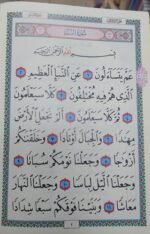 سُورَةُ النَّبَإِ
بِسْمِ اللَّهِ الرَّحْمَٰنِ الرَّحِيمِ
عَمَّ يَتَسَاءَلُونَ عَنِ النَّبَإِ الْعَظِيمِ
الَّذِي هُمْ فِيهِ مُخْتَلِفُونَ كَلَّا سَيَعْلَمُونَ
ثُمَّ كَلَّا سَيَعْلَمُونَ أَلَمْ نَجْعَلِ الْأَرْضَ
مِهَٰدًا وَالْجِبَالَ أَوْتَادًا وَخَلَقْنَٰكُمْ
أَزْوَٰجًا وَجَعَلْنَا نَوْمَكُمْ سُبَاتًا
وَجَعَلْنَا الَّيْلَ لِبَاسًا وَجَعَلْنَا النَّهَارَ
مَعَاشًا وَبَنَيْنَا فَوْقَكُمْ سَبْعًا شِدَادًا